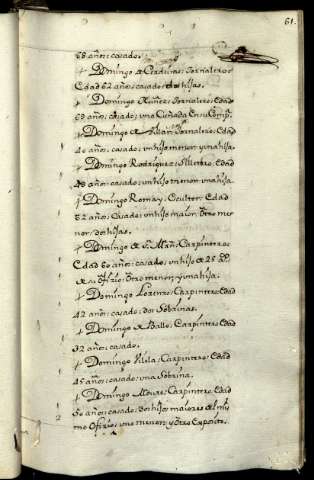 61.
58 años: casado.
Domingo de Cerdeiras: Jornalero:
Edad 62 años: casado: dos hijas.
Domingo Nuñez: Jornalero: Edad
59 años: casado: una Cuñada En su Comp.ª
Domingo de Jornalero: Edad
40 años: casado: un hijo menor: y una hija.
Domingo Rodriguez: Edad
años: casado: un hijo menor: una hija.
Domingo Romay: Escultor: Edad
52 años: Casado: un hijo maior: Otro me
nor: dos hijas.
Domingo de Sn. Martin: Carpintero:
Edad 60 años: casado: un hijo de 25 as.
de su Oficio: Otro menor: y una hija.
Domingo Lorenzo: Carpintero: Edad
42 años: casado: dos Sobrinas.
Domingo do Ballo: Carpintero: Edad
32 años: casado.
Domingo Vilela: Carpintero: Edad
45 años: casado: una Sobrina.
Domingo Moure: Carpintero: Edad
50 años: casado: dos hijos maiores de el mis
mo Oficio: uno menor: y Otro Exposito.